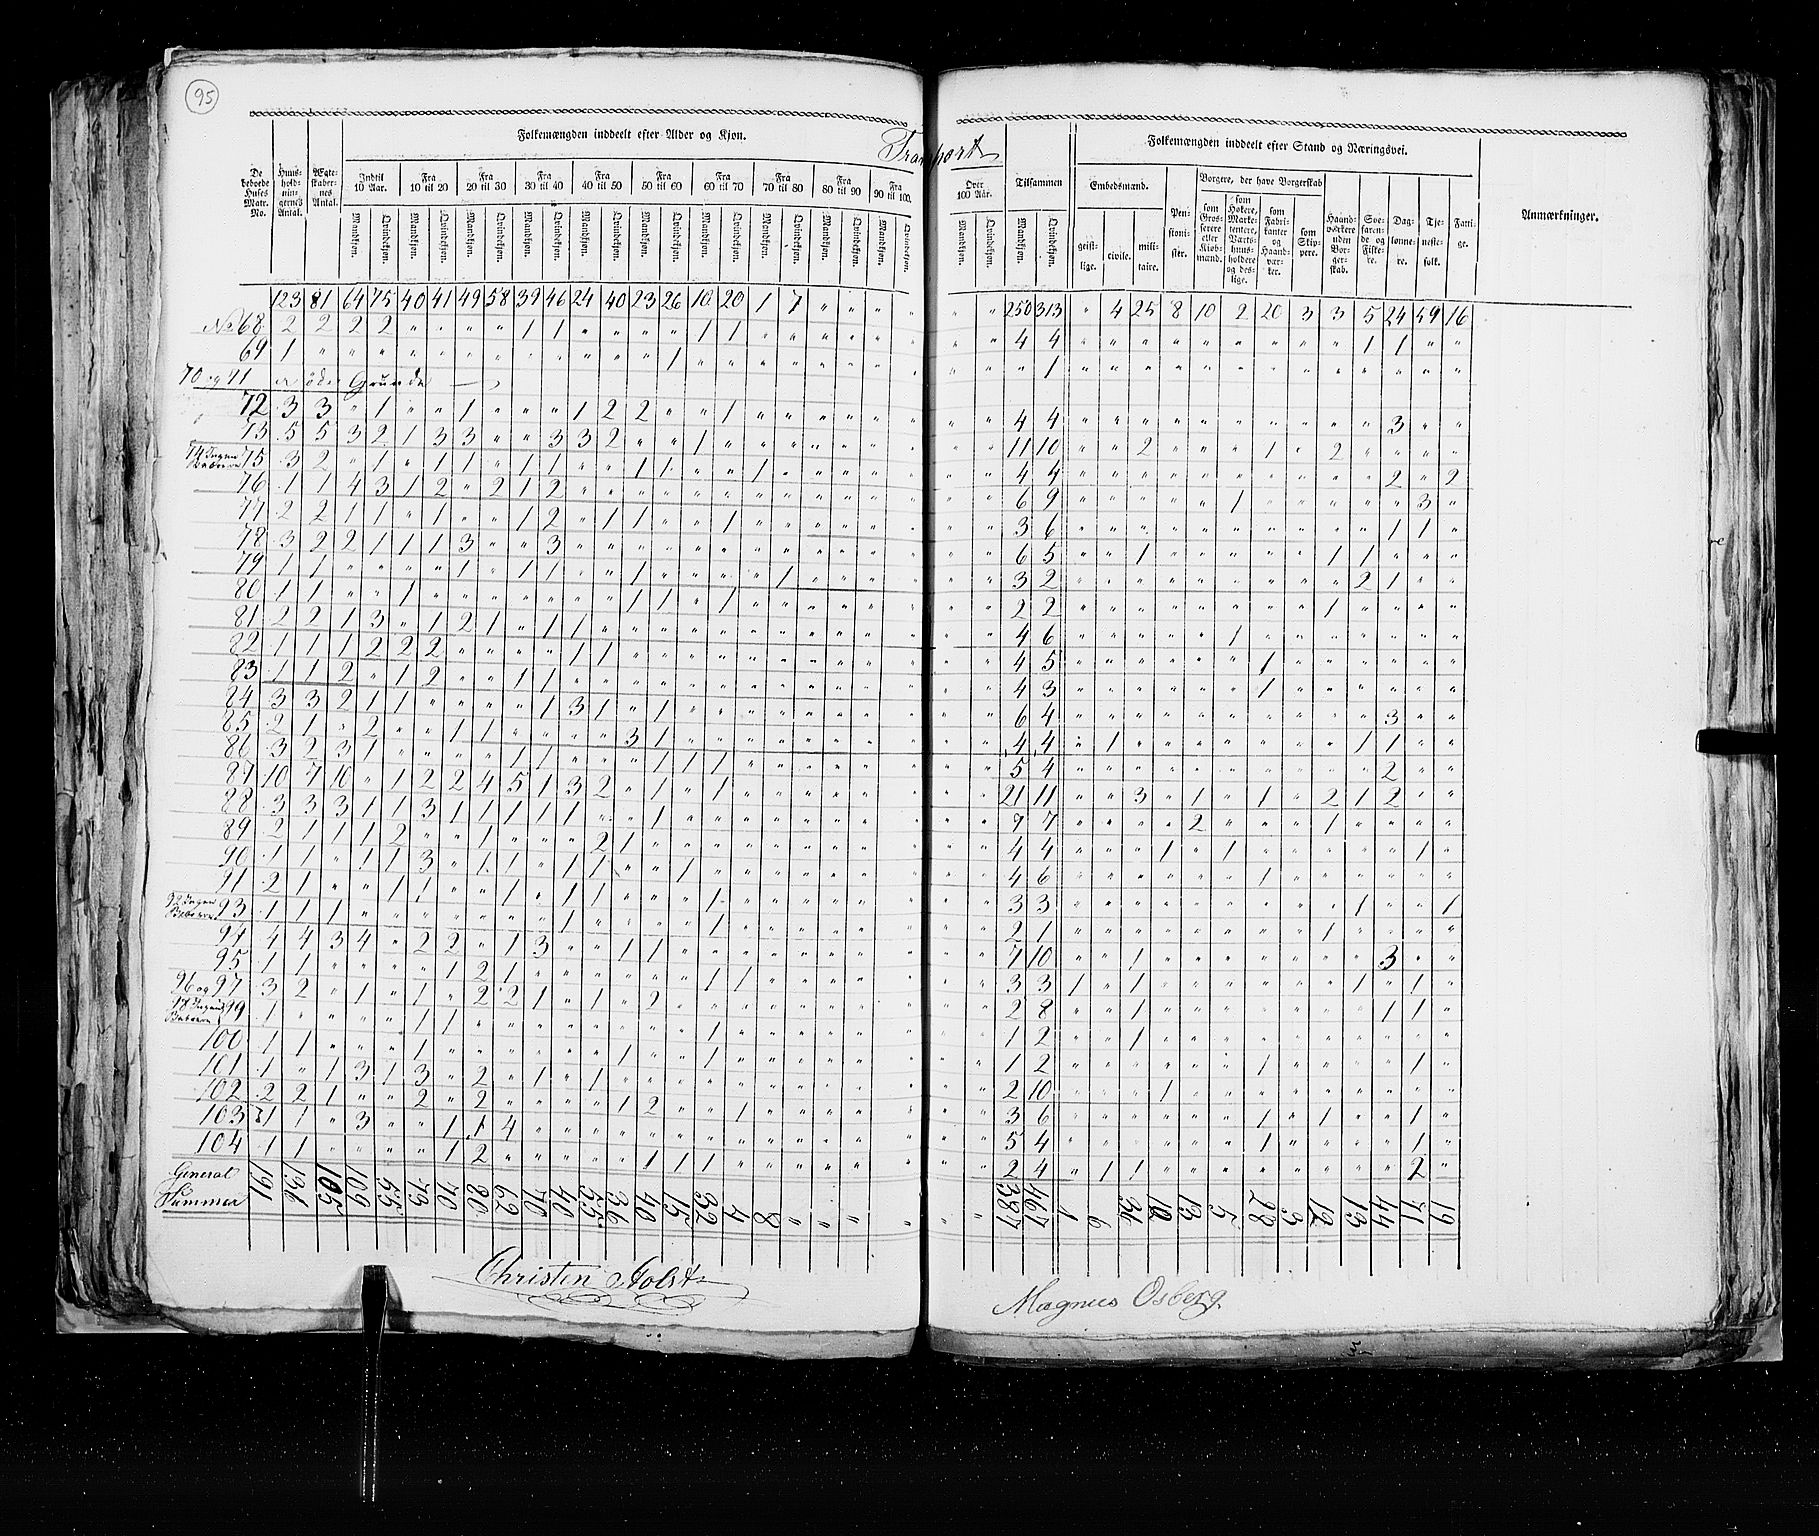 95
Folkemængden inddeelt efter Alder og Kjøn.
Transport
Folkemængden inddeelt efter Stand og Næringsvei.
De beboede Huses Matr. No.
Huus-hold-nin-gernes Antal.
Ægte-skaber-nes Antal.
Indtil 10 Aar.
Fra 10 til 20
Fra 20 til 30
Fra 30 til 40
Fra 40 til 50
Fra 50 til 60
Fra 60 til 70
Fra 70 til 80
Fra 80 til 90
Fra 90 til 100.
Over 100 Aar.
Tilsammen
Mandkjøn. Qvindekjøn.
Embedsmænd.
geist-lige. civile. mili-taire.
Pen-sioni-ster.
Borgere, der have Borgerskab
som Gros-serere eller Kjøb-mænd.
som Høkere, Marke-tentere, Værts-huus-holdere og des-lige.
som Fabri-kanter og Haand-vær-ker.
som Skip-pere.
Haand-værkere uden Bor-ger-skab.
Søe-farende og Fiske-re.
Dag-lønne-re.
Tje-neste-folk.
Fatti-ge.
Anmærkninger.
123 81 64 75 40 41 49 58 39 46 24 40 23 26 10 20 1 7 " " " " " " 250 313 " 4 25 8 10 2 20 3 3 5 24 59 16
No 68 2 2 2 2 " " " " 1 1 " " " " 1 1 4 4 1 1
69 1 1 1
70 og 71 er øde Grunde
72 3 3 " 1 " " 1 " " " 1 2 2 " " 1 4 4 3
73 5 5 3 2 1 3 3 " " 3 3 2 " " 1 11 10 2 1 2
74 Ingen Beboere 75 3 2 " 1 " 1 1 " 1 1 " " 1 1 " " 1 4 4 2 " 2
76 1 1 4 3 1 2 " 2 1 2 6 9 1 3
77 2 2 1 1 " 1 " " 1 2 " 1 1 " " 1 3 6 1 1
78 3 2 2 1 1 1 3 " " 3 6 5 1 1 1
79 1 1 " " " " 1 " 1 1 " " 1 " " " " 1 3 2 2 1
80 1 1 " " 1 " " " " " " " 1 1 " 1 2 2 1
81 2 2 1 3 " 1 2 1 " 1 1 4 6 1
82 1 1 1 2 2 2 " " " " 1 1 4 5 1
83 1 1 2 " 1 2 " " 1 1 4 3 1
84 3 3 2 1 1 " " " " 1 3 1 " 1 6 4 3
85 2 1 " 2 " " 1 1 " " " " 3 1 4 4 1 1 1
86 3 2 3 1 " " " " 1 1 " " " 1 1 1 5 4 2
87 10 7 10 " 1 2 2 4 5 1 3 2 " 1 " 1 21 11 3 1 1 2 1 2
88 3 3 3 1 1 3 1 1 1 1 1 " " 1 9 7 2 1
89 2 1 1 1 2 " " 1 " " " 2 1 4 4 1 1 1
90 1 1 " 1 1 3 " 1 1 " 1 1 " " 1 4 6 1
91 2 1 " " 1 1 " " 1 " 1 1 " " " 1 3 3 1 1
92 Ingen Beboere 93 1 1 1 " " " " " " " 1 " " " " 1 2 1 1
94 4 4 3 4 " 2 2 " 1 3 " " 1 1 7 10 1 3
95 1 1 " " " " 1 2 1 " " " " " 1 1 3 3 1 1 1 1
96 og 97 3 2 " 1 " 1 " 2 2 1 " 1 " 2 2 8 1 1
98 Ingen Beboere 99 1 " " " " 1 1 " " " " " " " " 1 1 2 1
100 1 1 " " " 1 " " " " " " 1 " " 1 1 2 1 1
101 1 " 1 3 1 3 " 2 " 1 " 1 2 10 1
102 2 2 1 " " 2 " 2 " " " " 1 2 " " 1 3 6 1 1 1
103 1 1 " 3 " " 1 1 4 5 4 1 1
104 1 1 " " " " 1 2 " " " " " 1 1 1 2 4 " 1 1 2
General Summer 191 136 105 109 55 73 70 80 62 70 40 55 36 40 15 32 4 8 " " " " " " 387 467 1 6 36 10 13 5 28 3 12 13 44 71 19
Christen Holst
Magnus Osberg.